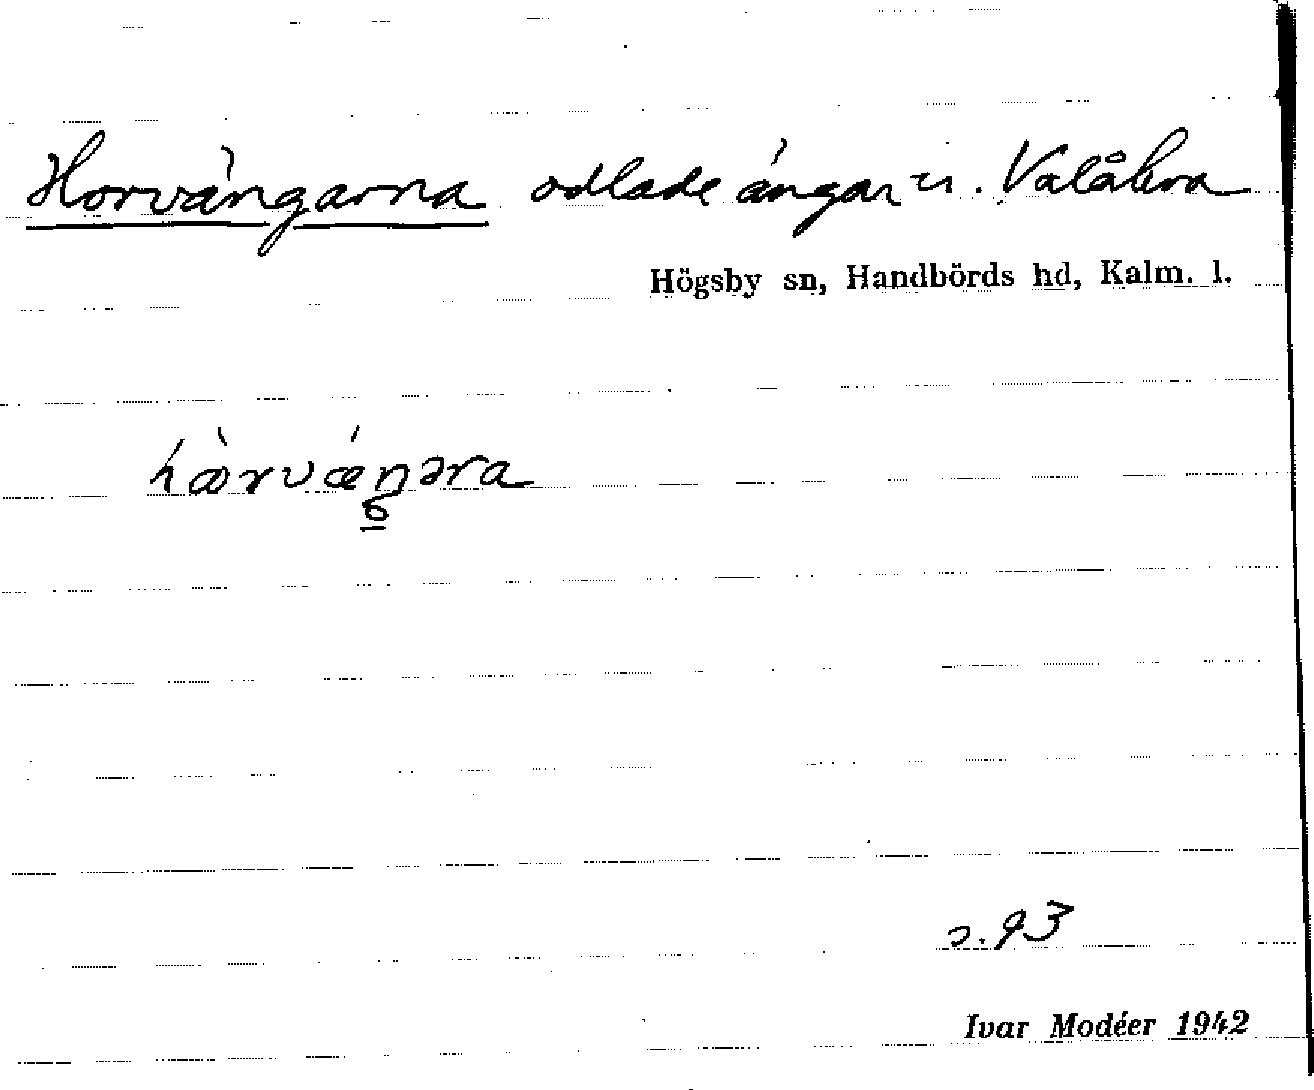 Horvängarna odlade ängar u. Valåkra
Högsby sn, Handbörds hd, Kalm. l.
s. 93
Ivar Modéer 1942